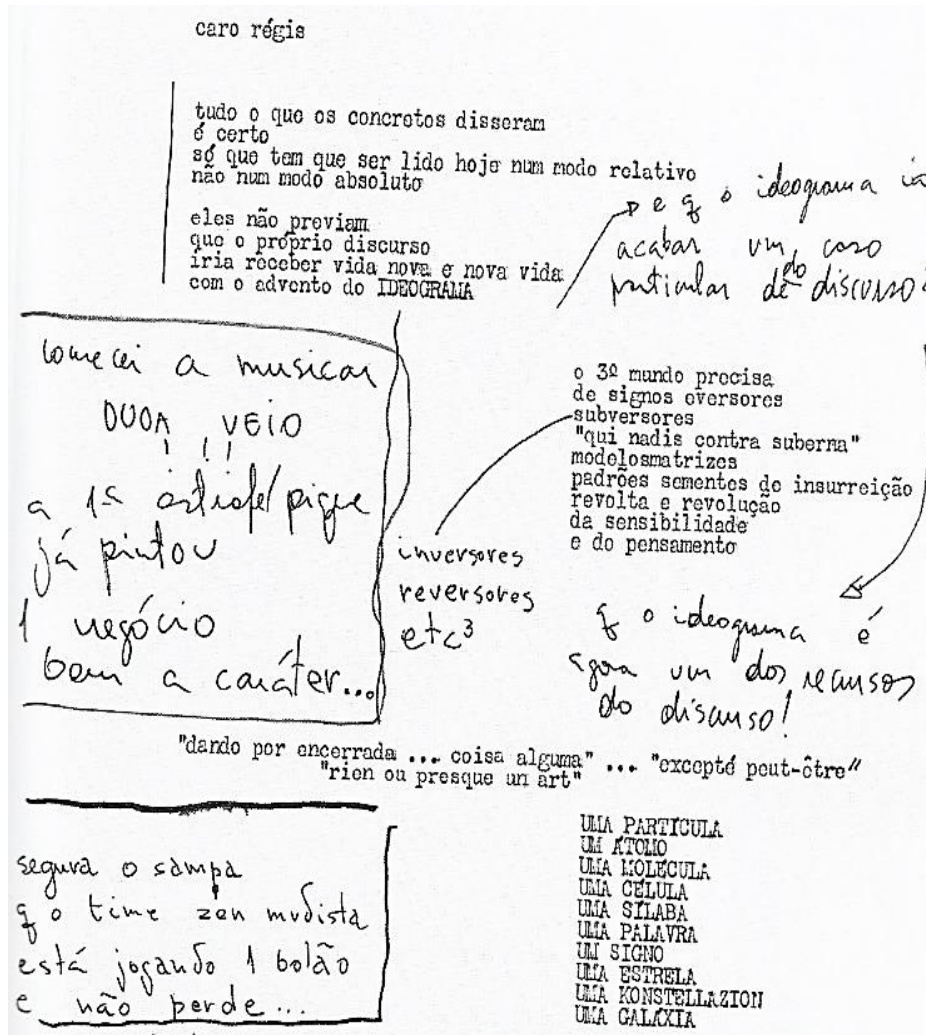 caro régis
tudo o que os concretos disseram
é certo
só que tem que ser lido hoje num modo relativo
não num modo absoluto
eles não previam
que o próprio discurso
iria receber vida nova e nova vida
com o advento do IDEOGRAMA
e q o ideograma
acabar um caso
particular de do discurso
comecei a musicar
DUDA VEIO
! ! !
a 1ª estrofe/pique
já pintou
1 negócio
bem a caráter...
o 3º mundo precisa
de signos eversores
subversores
"qui nadis contra suberna"
modelosmatrizes
padrões sementes de insurreição
revolta e revolução
da sensibilidade
e do pensamento
inversores
reversores
etc³
q o ideograma é
agora um dos recursos
do discurso!
"dando por encerrada ... coisa alguma" ... "excepté peut-être"
"rien ou presque un art"
segura o sampa
q o time zen mudista
está jogando 1 bolão
e não perde...
UMA PARTÍCULA
UM ÁTOMO
UMA MOLÉCULA
UMA CÉLULA
UMA SÍLABA
UMA PALAVRA
UM SIGNO
UMA ESTRELA
UMA KONSTELLAZION
UMA GALÁXIA